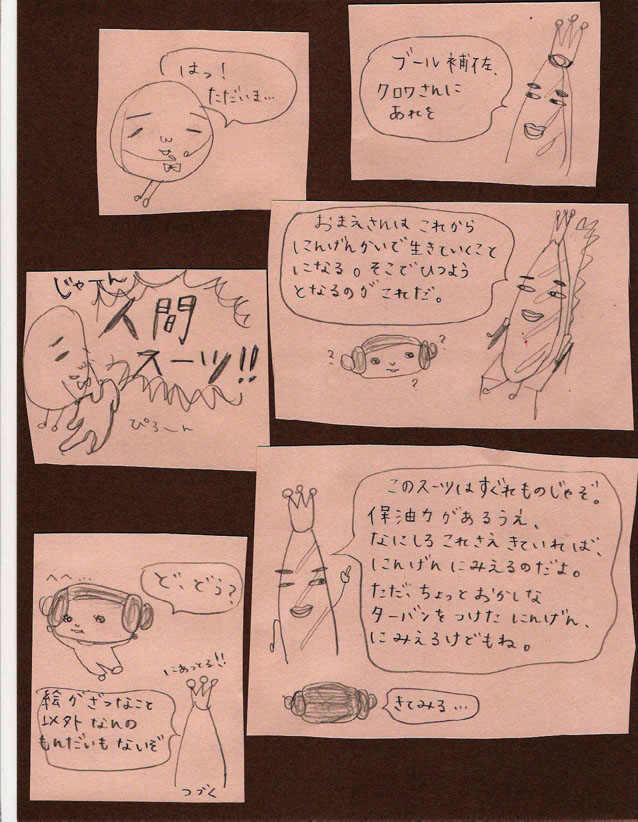 ブール補佐、
クロワさんに
あれを
はっ!
ただいま…
おまえさんは これから
にんげんかいで生きていくこと
になる。そこでひつよう
となるのがこれだ。
?
?
?
じゃーん
人間
スーツ!!
ぴろーん
このスーツはすぐれものじゃぞ。
保油力があるうえ、
なにしろ これさえ きていれば、
にんげん にみえるのだよ。
ただ、ちょっと おかしな
ターバンを つけた にんげん、
にみえるけどもね。
きてみる…
へへ…
ど、どう?
にあっとる!!
絵がざつなこと
以外 なんの
もんだいも ないぞ
つづく